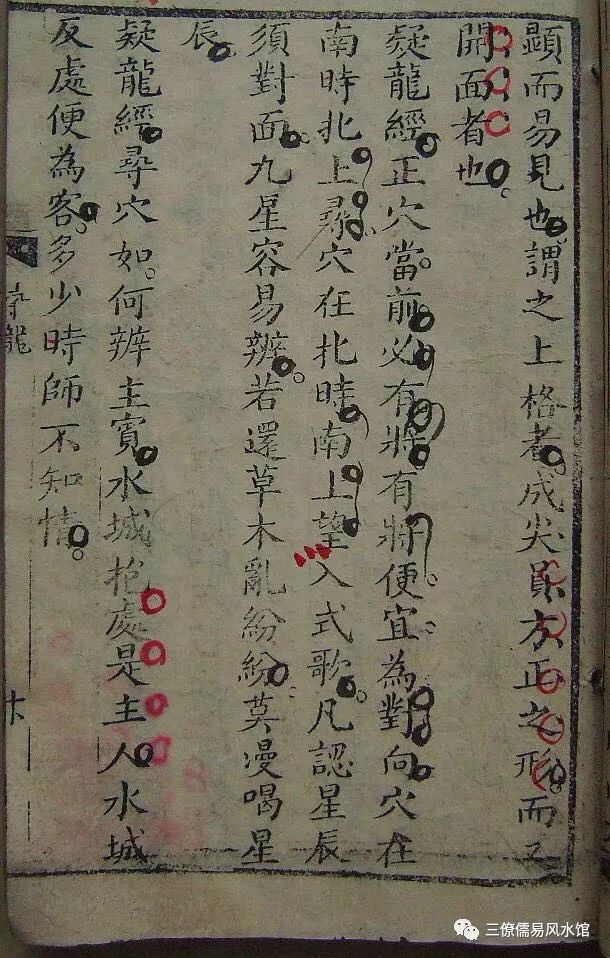 顯而易見也謂之上格者成尖員方正之形而又
開面者也
疑龍經正穴當前必有將有將便宜為對向穴在
南時北上尋穴在北時南上望入式歌凡認星辰
須對面九星容易辨若還草木亂紛紛莫漫喝星
辰
疑龍經尋穴如何辨主賓水城抱處是主人水城
反處便為客多少時師不知情
三僚儒易风水馆